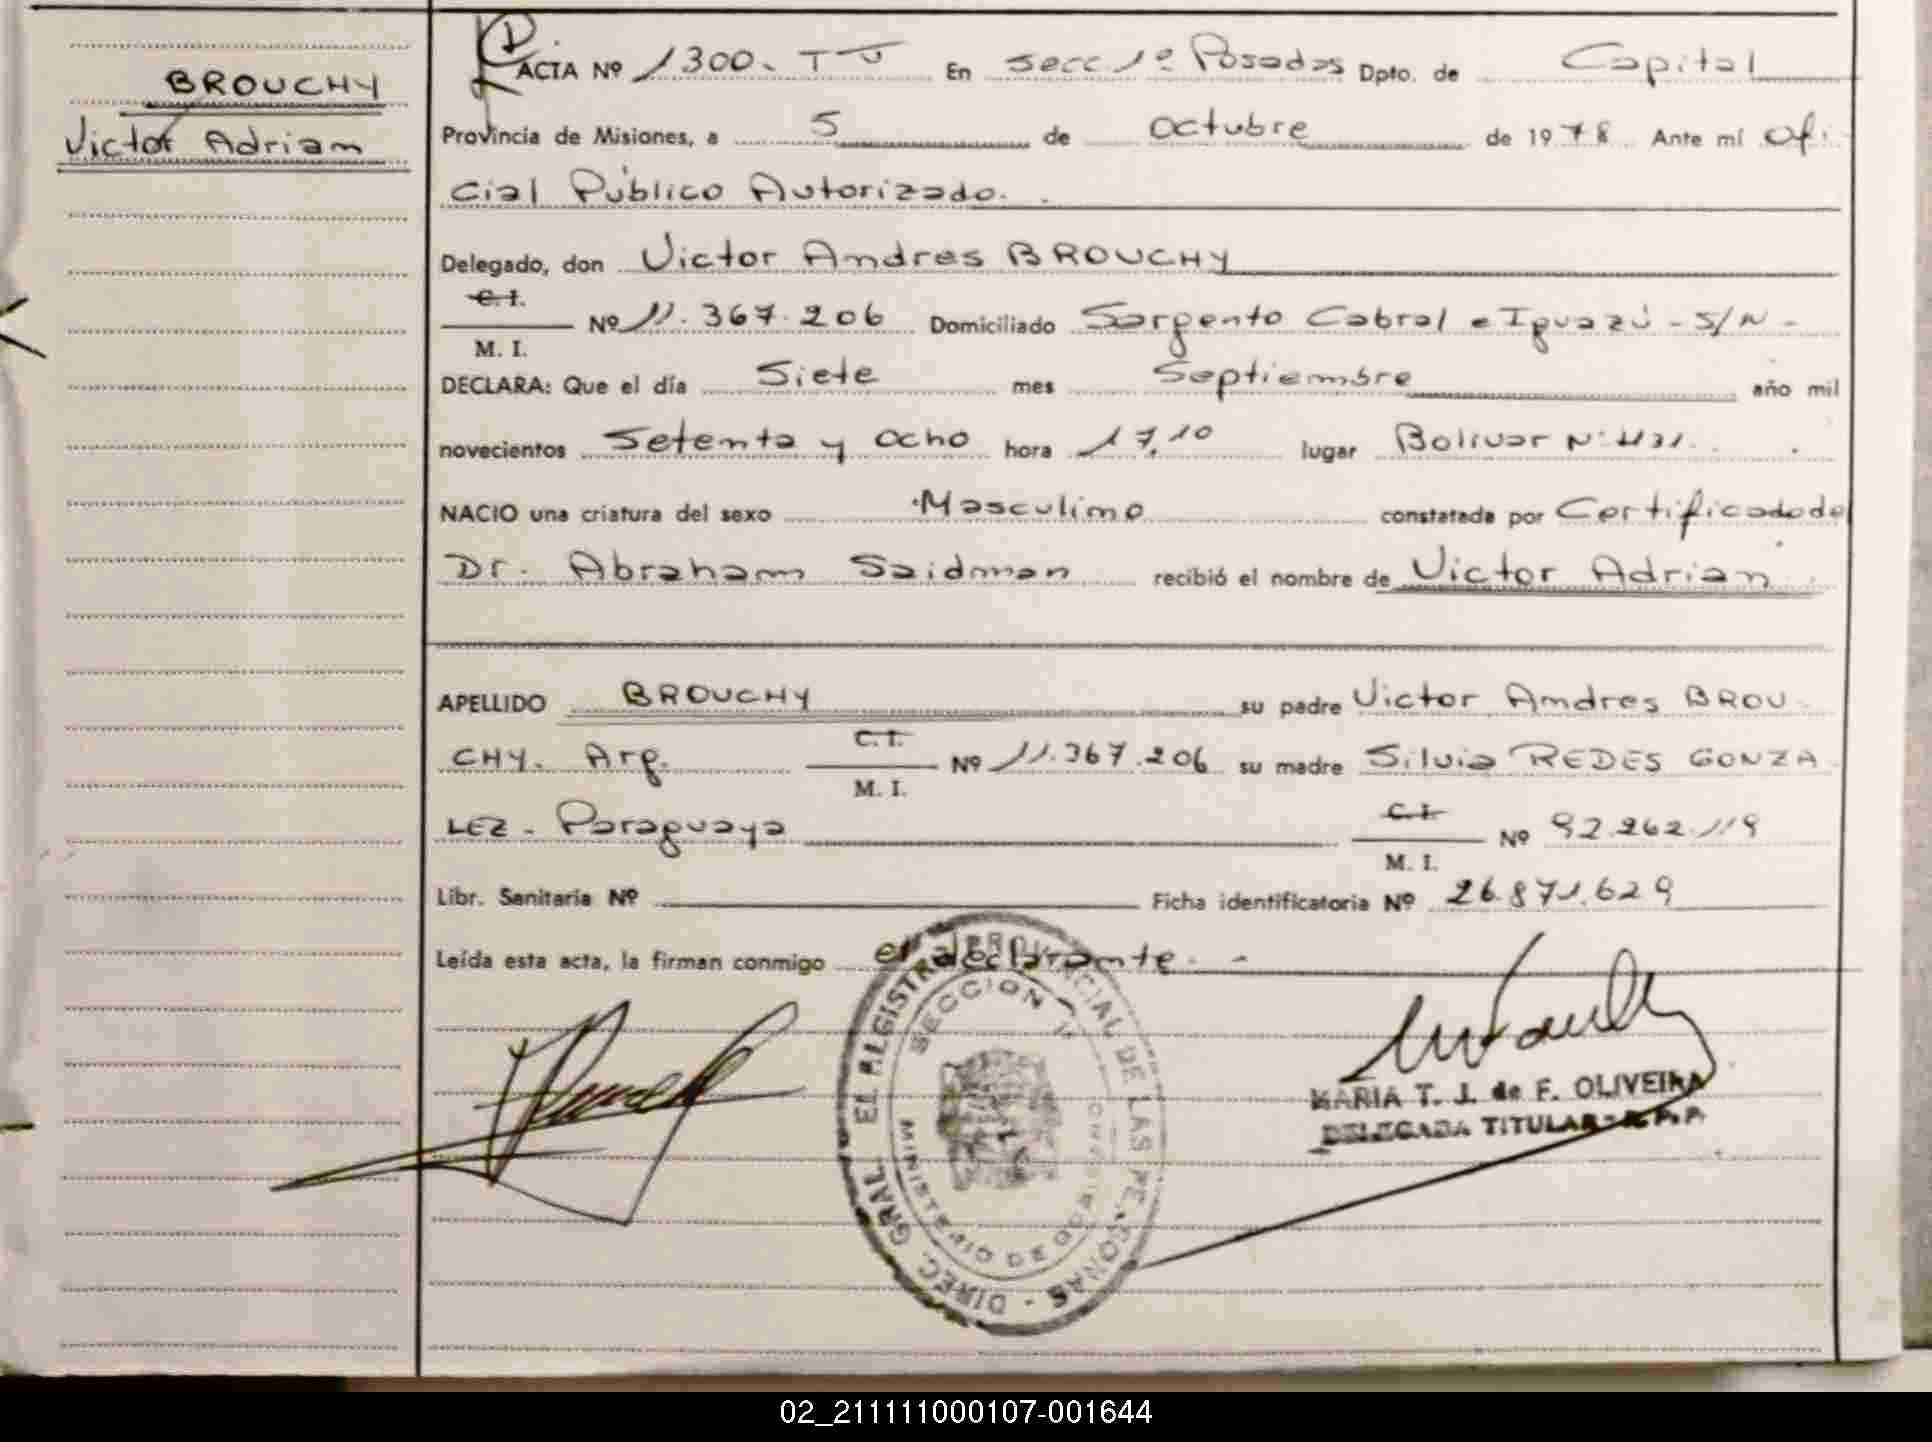 BROUCHY
Victor Adrian
ACTA Nº 1300. TJ En Secc 1ª Posadas Dpto. de Capital
Provincia de Misiones, a 5 de Octubre de 1978 Ante mí Ofi-
cial Público Autorizado.
Delegado, don Victor Andres BROUCHY
C. I.
Nº 11.367.206 Domiciliado Sargento Cabral e Iguazú - S/N -
M. I.
DECLARA: Que el día Siete mes Septiembre año mil
novecientos Setenta y Ocho hora 17,10 lugar Bolivar Nº
NACIO una criatura del sexo Masculino constatada por Certificado de
Dr. Abraham Saidman recibió el nombre de Victor Adrian
APELLIDO BROUCHY su padre Victor Andres BROU-
CHY. Arg. C. I. Nº 11.367.206 su madre Silvia REDES GONZA
M. I.
LEZ - Paraguaya C. I. Nº 92.262.119
M. I.
Libr. Sanitaria Nº Ficha identificatoria Nº 26.871.629
Leída esta acta, la firman conmigo el declarante. -
DIREC. GRAL. EL REGISTRO PROVINCIAL DE LAS PERSONAS -
SECCION 1ª
MINISTERIO DE GOBIERNO
MARIA T. J. de F. OLIVEIRA
DELEGADA TITULAR - R.P.P
02_211111000107-001644